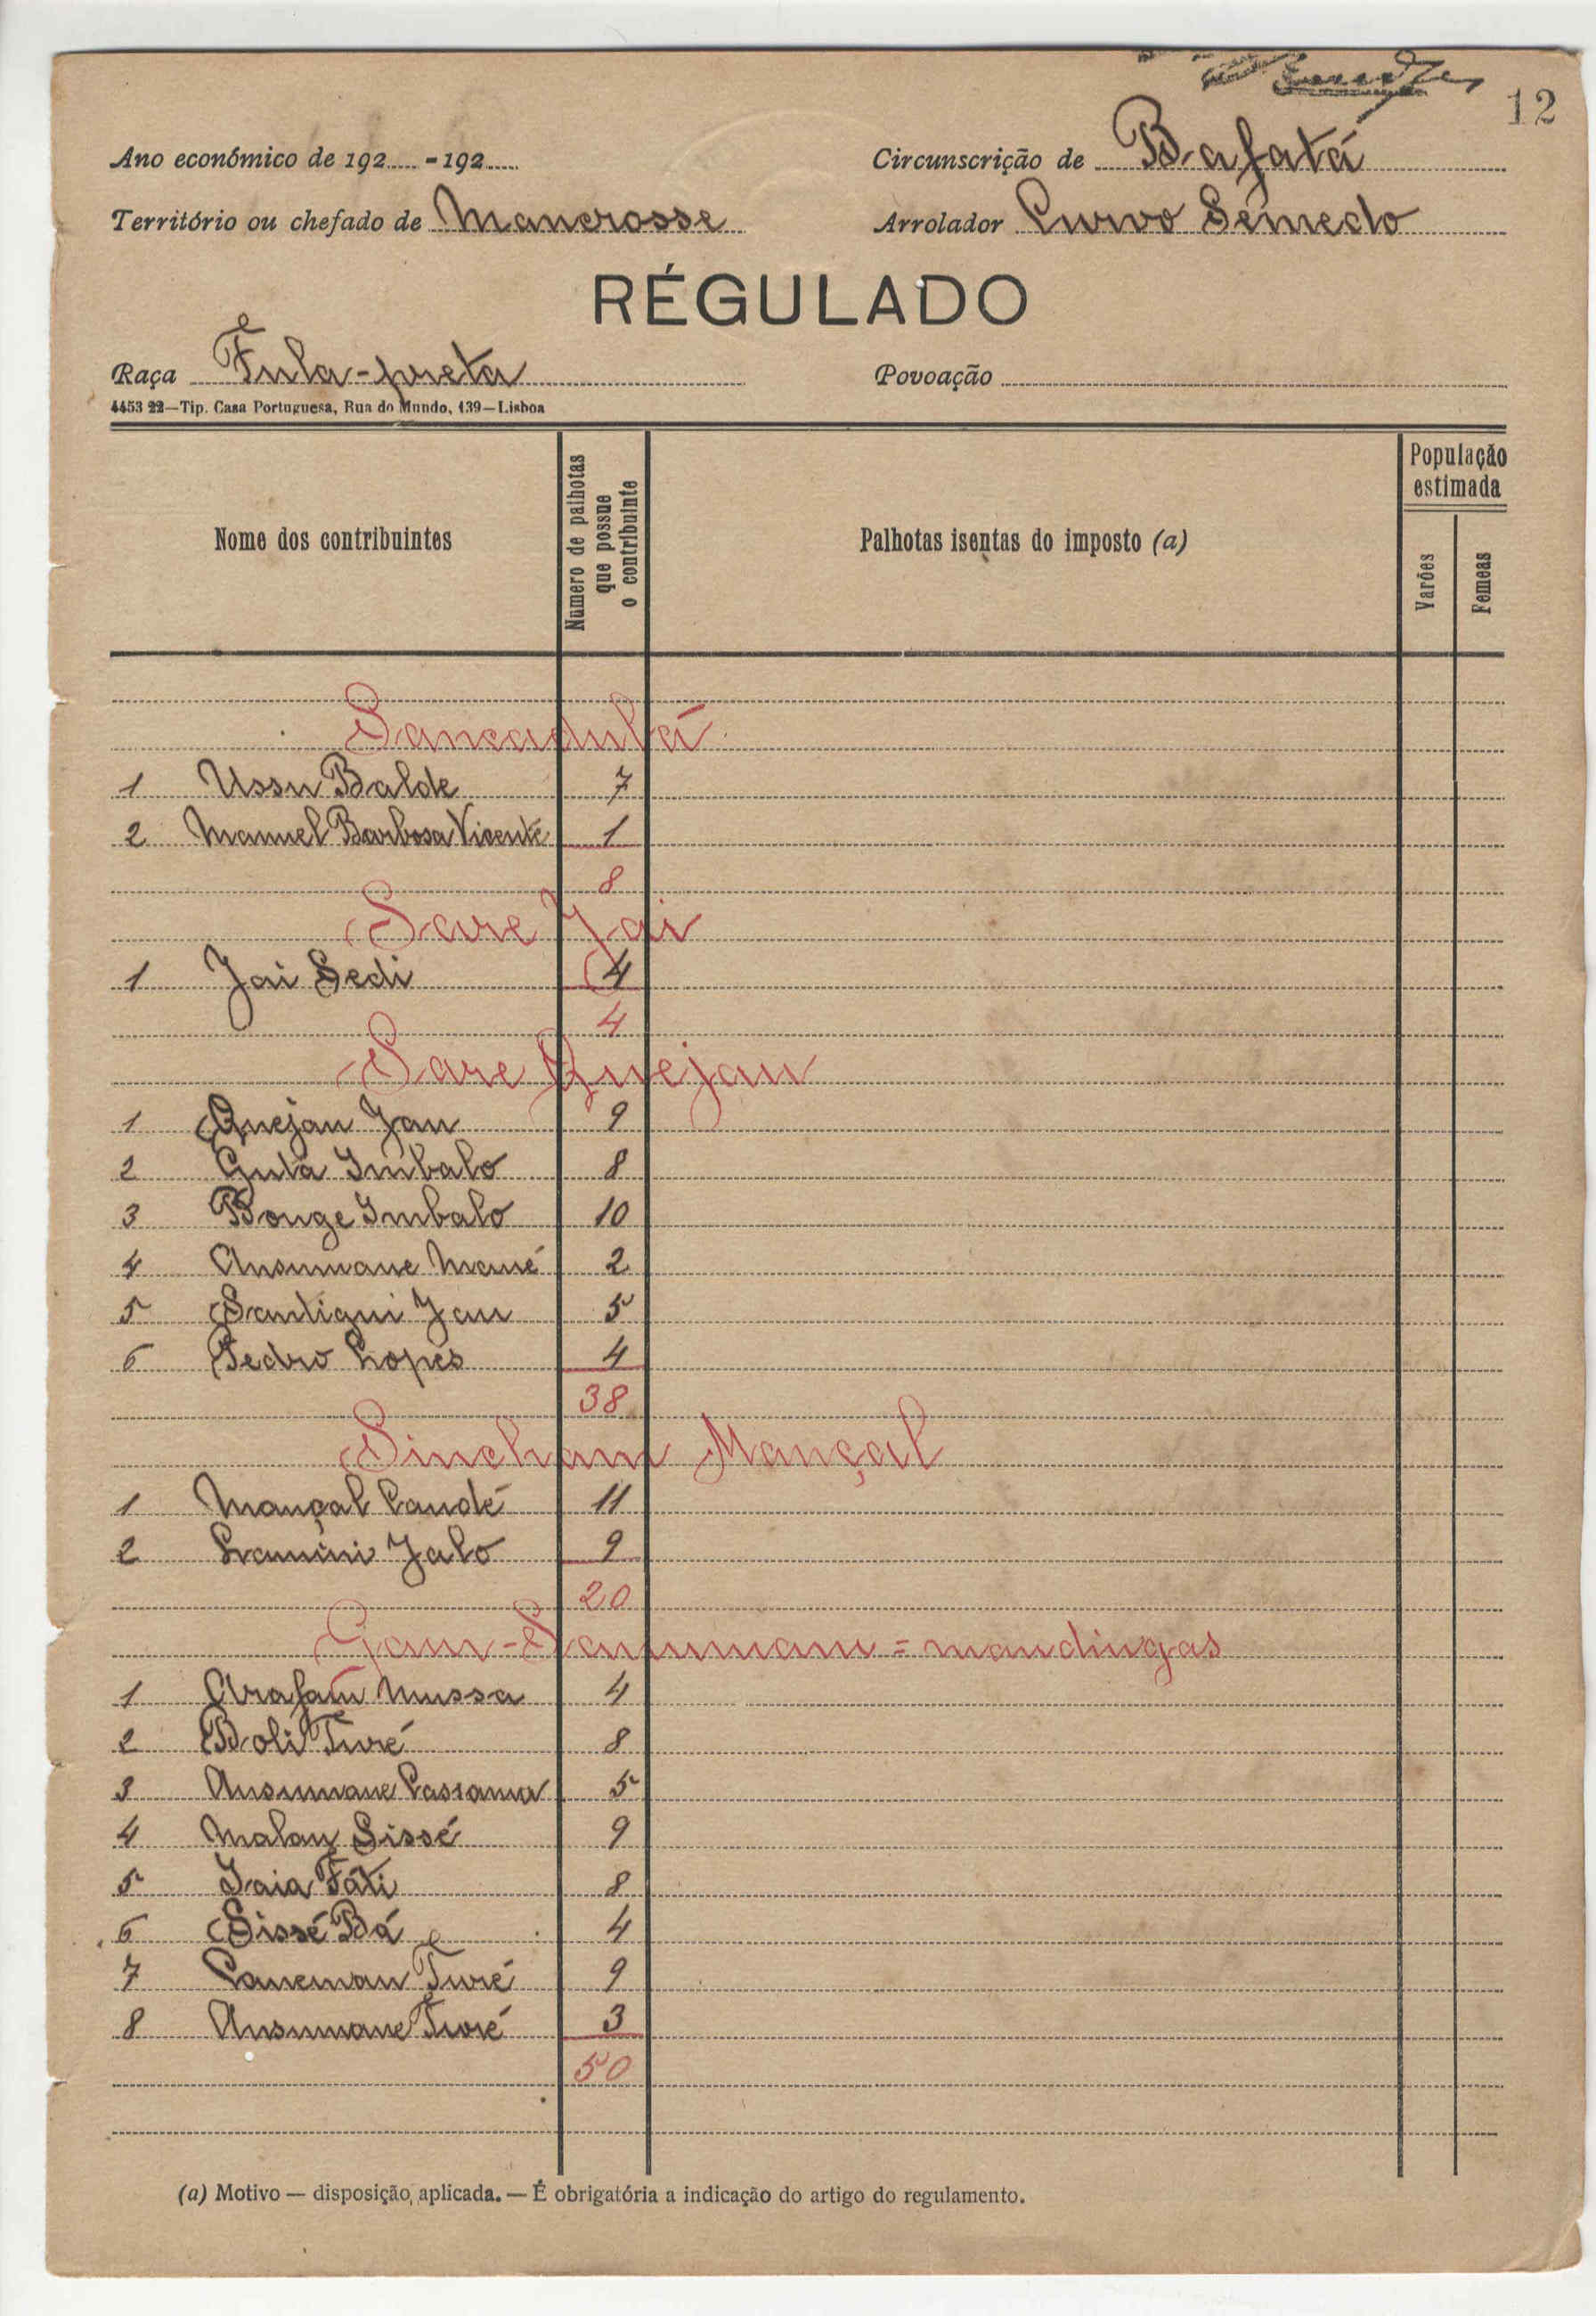 12
Ano económico de 192 - 192
Circunscrição de Bafatá
Território ou chefado de Mancrosse
Arrolador Curvo Semedo
RÉGULADO
Raça Fula-preta
Povoação
4453 22—Tip. Casa Portuguesa, Rua do Mundo, 139—Lisboa
Nome dos contribuintes
Número de palhotas que possue o contribuinte
Palhotas isentas do imposto (a)
População estimada
Varões
Femeas
Sancadulá
1 Ussu Balde 7
2 Manuel Barbosa Vicente 1
8
Sare Jai
1 Jai Sedi 4
4
Sare Quejau
1 Quejau Jau 9
2 Guta Imbalo 8
3 Bouge Imbalo 10
4 Ansumane Mané 2
5 Santigui Jau 5
6 Pedro Lopes 4
38
Sincham Mançal
1 Mançal Candé 11
2 Lamini Jalo 9
20
Gam-Sammam = mandingas
1 Arafam Mussa 4
2 Boli Turé 8
3 Ansumane Cassama 5
4 Malan Sissé 9
5 Iaia Fáti 8
6 Sissé Bá 4
7 Caneman Turé 9
8 Ansumane Turé 3
50
(a) Motivo — disposição aplicada. — É obrigatória a indicação do artigo do regulamento.